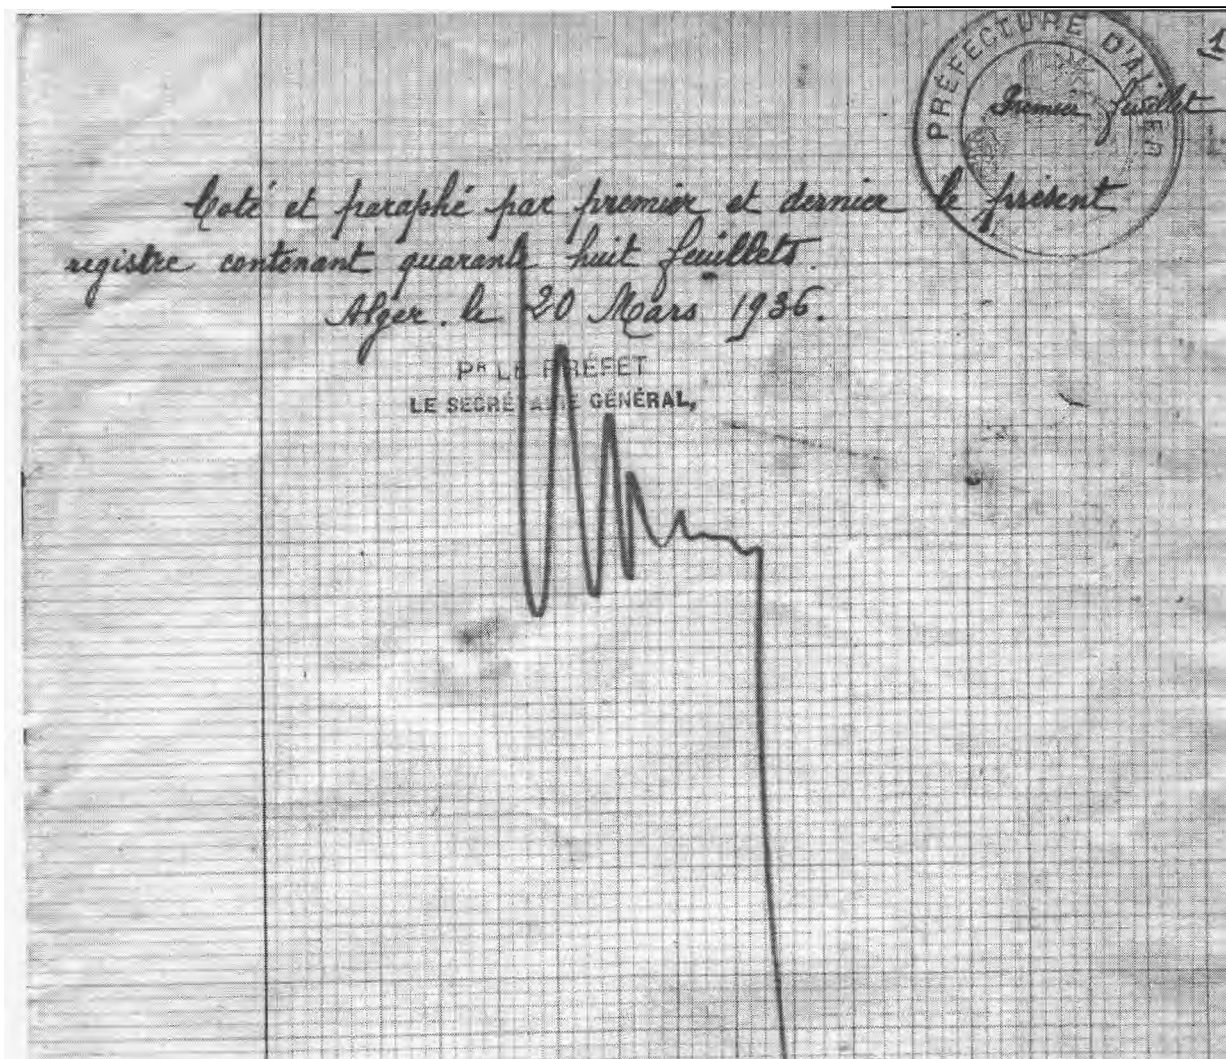 1
PRÉFECTURE D'ALGER
Premier feuillet
Coté et paraphé par premier et dernier le présent
registre contenant quarante huit feuillets.
Alger. le 20 Mars 1936.
PR LE PRÉFET
LE SECRÉTAIRE GÉNÉRAL,